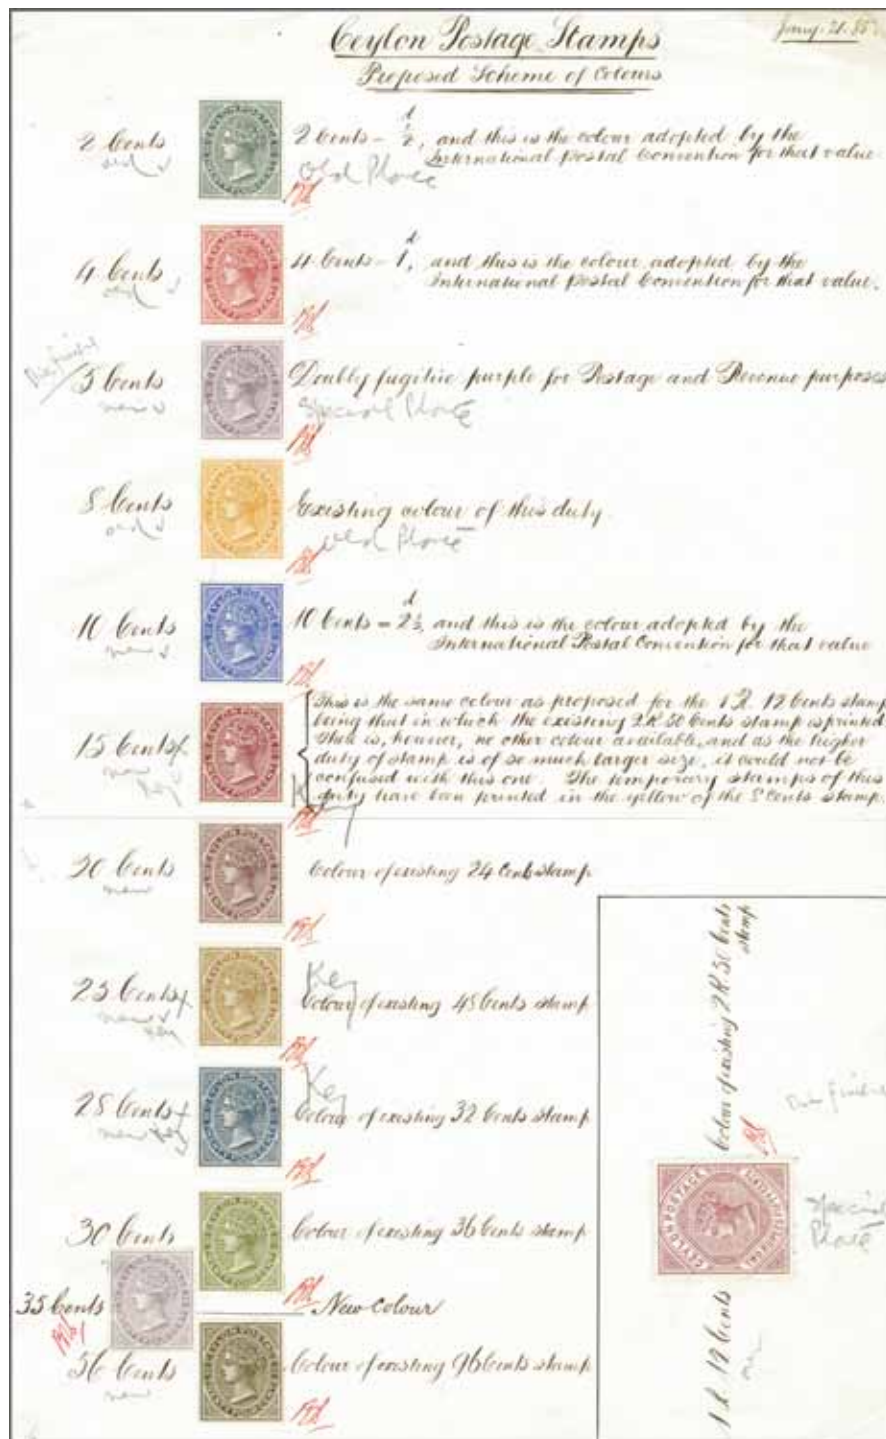 Ceylon Postage Stamps
Jany. 21. 85
Proposed Scheme of Colours
2 Cents
old
2 Cents = ½d, and this is the colour adopted by the
International Postal Convention for that value.
Old Plate
4 Cents
old
4 Cents = 1d, and this is the colour adopted by the
International Postal Convention for that value.
5 Cents
new
Doubly fugitive purple for Postage and Revenue purposes
Special Plate
8 Cents
old
Existing colour of this duty.
Old Plate
10 Cents
new
10 Cents = 2½d, and this is the colour adopted by the
International Postal Convention for that value
15 Cents
new
Key
This is the same colour as proposed for the 1 R. 12 Cents stamp
being that in which the existing 2 R. 50 Cents stamp is printed.
There is, however, no other colour available, and as the higher
duty of stamp is of so much larger size, it could not be
confused with this one. The temporary stamps of this
duty have been printed in the yellow of the 8 Cents stamp.
Key
20 Cents
new
Colour of existing 24 Cents stamp
25 Cents
new
Key
Key
Colour of existing 48 Cents stamp
28 Cents
new Key
Key
Colour of existing 32 Cents stamp
30 Cents
Colour of existing 36 Cents stamp
35 Cents
New Colour
56 Cents
new
Colour of existing 96 Cents stamp
Colour of existing 2 R 50 Cents
stamp
CEYLON POSTAGE
Special
Plate
1 R. 12 Cents